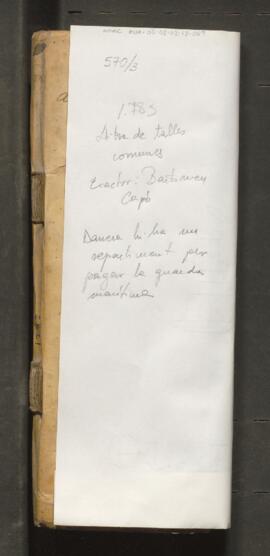 570/3
1.785
Llibre de talles
comunes
Exactor: Bartomeu
Capó
Darrera hi ha un
repartiment per
pagar la guarda
marítima